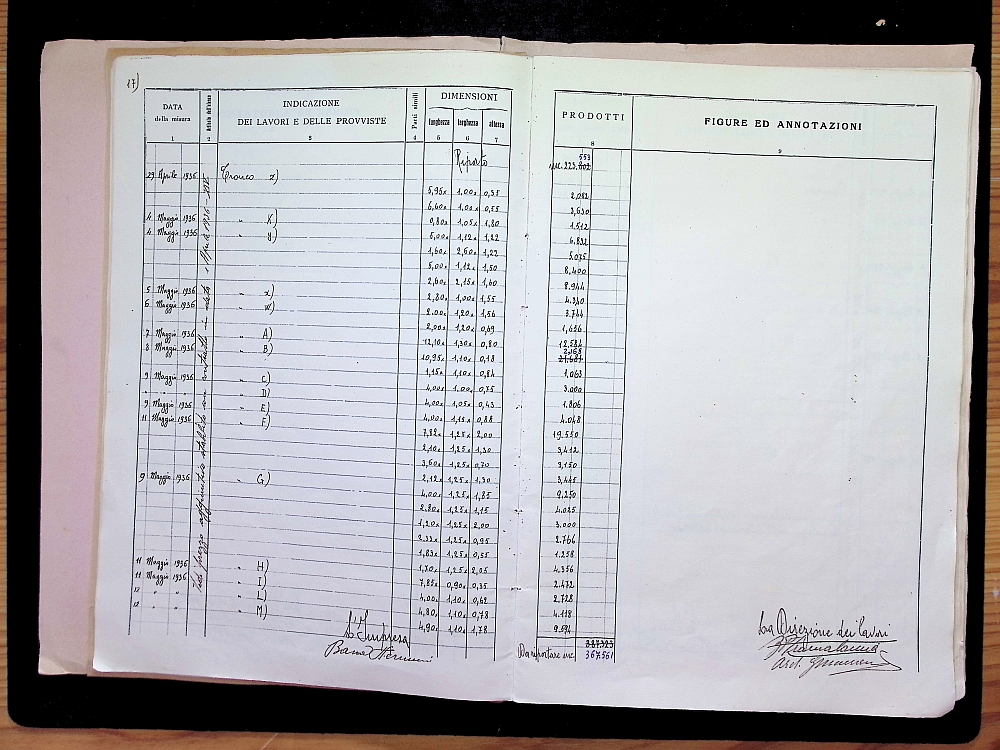 17)
DATA
della misura
Articolo dell'elenco
INDICAZIONE
DEI LAVORI E DELLE PROVVISTE
Parti simili
DIMENSIONI
lunghezza larghezza altezza
1 2 3 4 5 6 7
PRODOTTI
8
FIGURE ED ANNOTAZIONI
9
Riporto
553
mc. 223.802
29 Aprile 1936 Tronco z)
5,95x 1,00x 0,35 2,082
6,60x 1,00x 0,55 3,630
4 Maggio 1936 " K) 0,80x 1,05x 1,80 1.512
4 Maggio 1936 " y) 5,00x 1,12x 1,22 6.832
1,60x 2,60x 1,22 5.075
5,00x 1,12x 1,50 8,400
2,60x 2,15x 1,60 8.944
5 Maggio 1936 " x) 2,80x 1,00x 1,55 4.340
6 Maggio 1936 " W) 2,00x 1,20x 1,56 3.744
2,00x 1,20x 0,69 1,656
7 Maggio 1936 " A) 12,10x 1,30x 0,80 12,584
8 Maggio 1936 " B) 10,95x 1,10x 0,18 2,168
1,15x 1,10x 0,84 1,063
9 Maggio 1936 " C) 4,00x 1,00x 0,75 3.000
" D) 4,00x 1,05x 0,43 1.806
9 Maggio 1936 " E) 4,00x 1,15x 0,88 4.048
11 Maggio 1936 " F) 7,82x 1,25x 2,00 19.550
2,10x 1,25x 1,30 3,412
3,60x 1,25x 0,70 3,150
9 Maggio 1936 " G) 2,12x 1,25x 1,30 3,445
4,00x 1,25x 1,85 9.250
2.80x 1,25x 1,15 4.025
1,20x 1,25x 2,00 3.000
2,33x 1,25x 0,95 2.766
1,83x 1,25x 0,55 1.258
11 Maggio 1936 " H) 1,70x 1,25x 2,05 4.356
11 Maggio 1936 " I) 7,85x 0,90x 0,35 2.472
12 " " " L) 4,00x 1,10x 0,62 2.728
12 " " " M) 4,80x 1,10x 0,78 4.118
4,90x 1,10x 1,78 9.594
387.323
Da riportare mc. 367.561
L'Impresa
La Direzione dei lavori